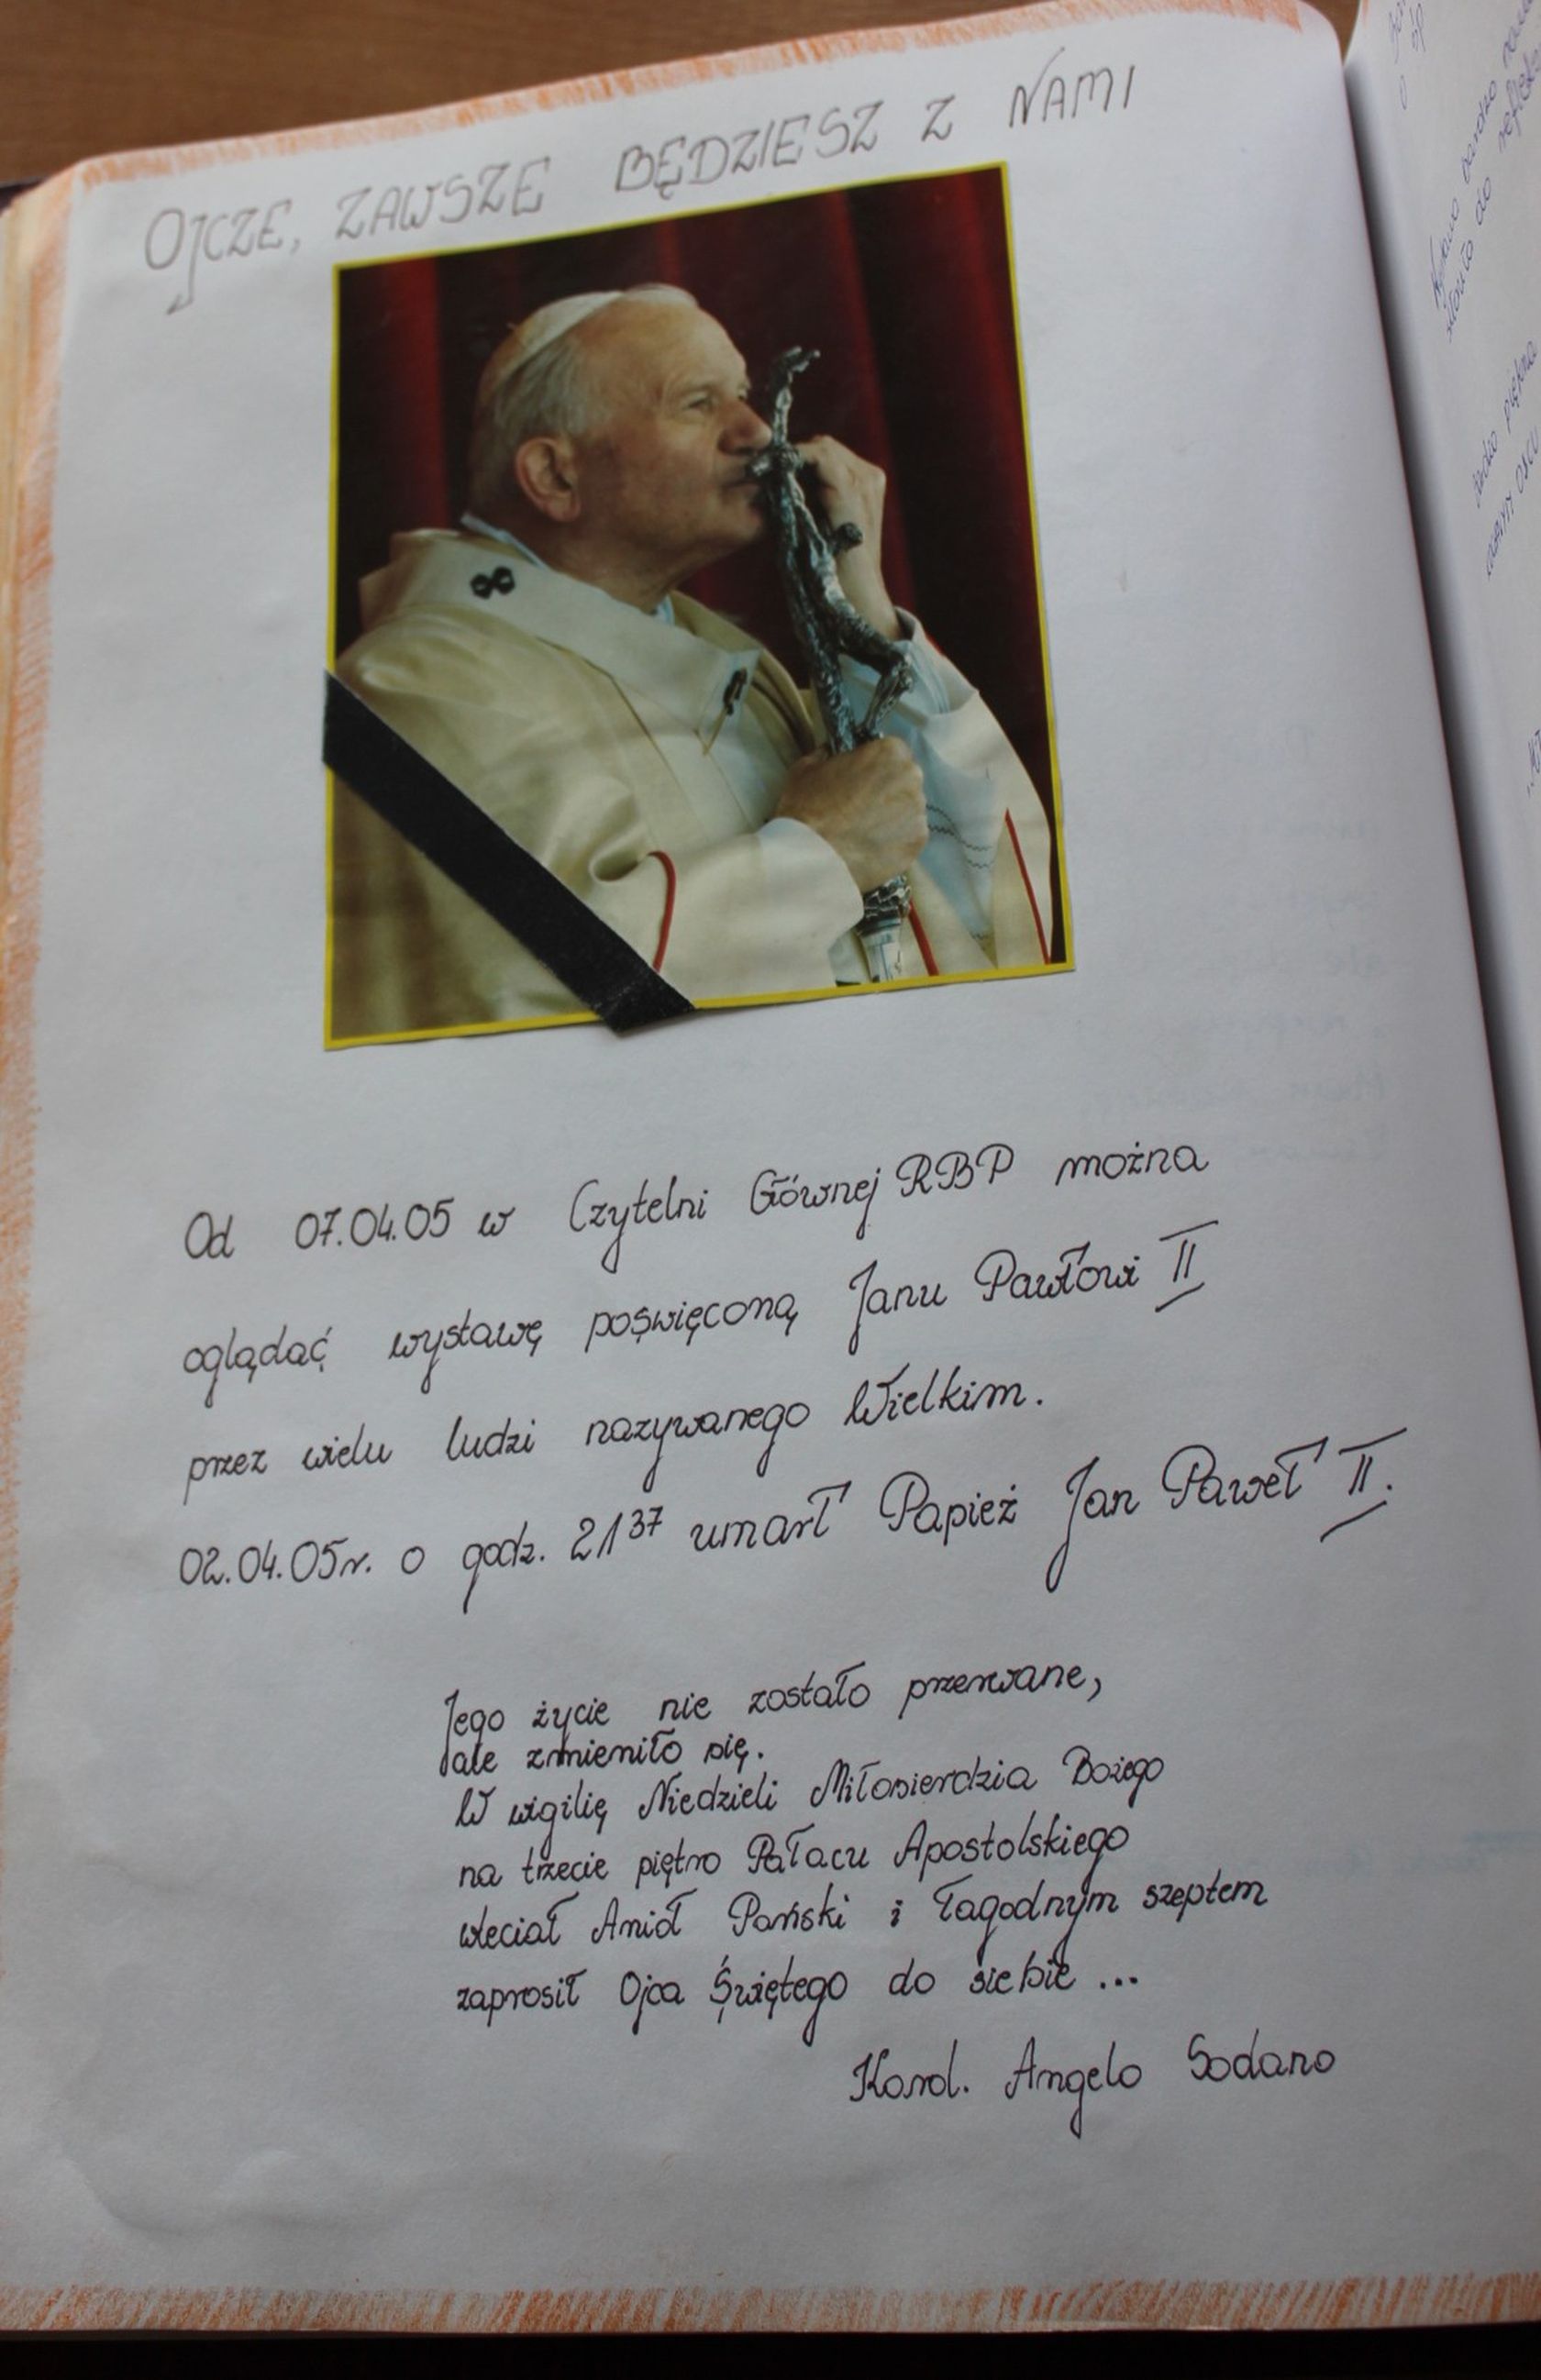 OJCZE, ZAWSZE BĘDZIESZ Z NAMI
Od 07.04.05 w Czytelni Głównej RBP można
oglądać wystawę poświęconą Janu Pawłowi II
przez wielu ludzi nazywanego Wielkim.
02.04.05r. o godz. 21³⁷ umarł Papież Jan Paweł II.
Jego życie nie zostało przerwane,
ale zmieniło się.
W wigilię Niedzieli Miłosierdzia Bożego
na trzecie piętro Pałacu Apostolskiego
wleciał Anioł Pański i łagodnym szeptem
zaprosił Ojca Świętego do siebie ...
Kard. Angelo Sodano